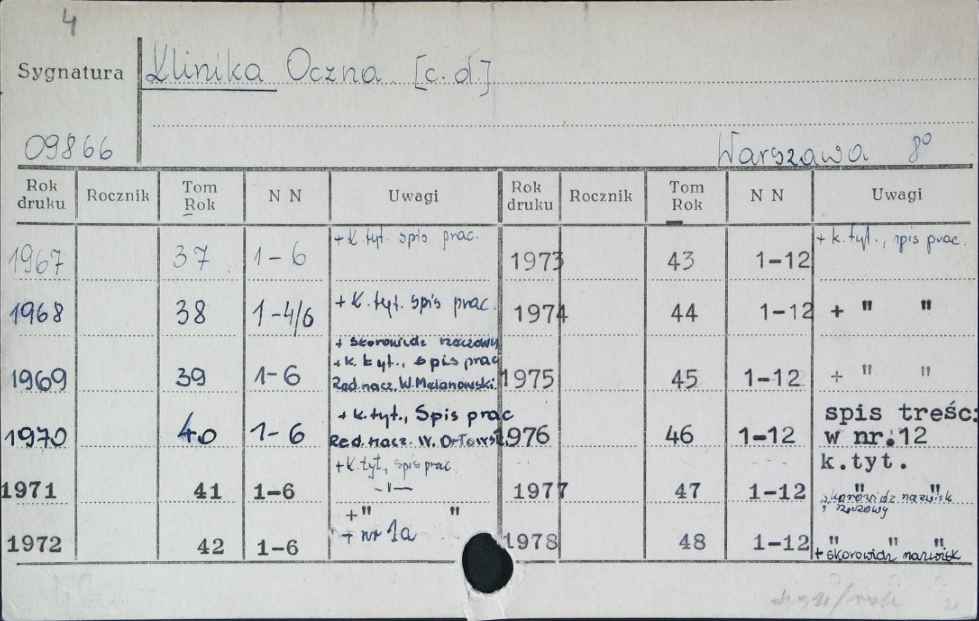 4
Sygnatura Klinika Oczna [c.d.]
09866 Warszawa 8°
Rok druku Rocznik Tom Rok N N Uwagi Rok druku Rocznik Tom Rok N N Uwagi
1967 37 1-6 + k. tyt. spis prac. 1973 43 1-12 + k. tyt., spis prac.
1968 38 1-4/6 + k. tyt. spis prac. 1974 44 1-12 + " "
+ skorowidz rzeczowy
1969 39 1-6 + k. tyt., spis prac Red. nacz. W. Melanowski. 1975 45 1-12 + " "
1970 40 1-6 + k. tyt., Spis prac Red. nacz. W. Orłowski 1976 46 1-12 spis treśc: w nr.12 k.tyt.
1971 41 1-6 + k. tyt, spis prac. -"- 1977 47 1-12 " " skorowidz nazwisk i rzeczowy
1972 42 1-6 +" " + nr 1a 1978 48 1-12 " " " + skorowidz nazwisk